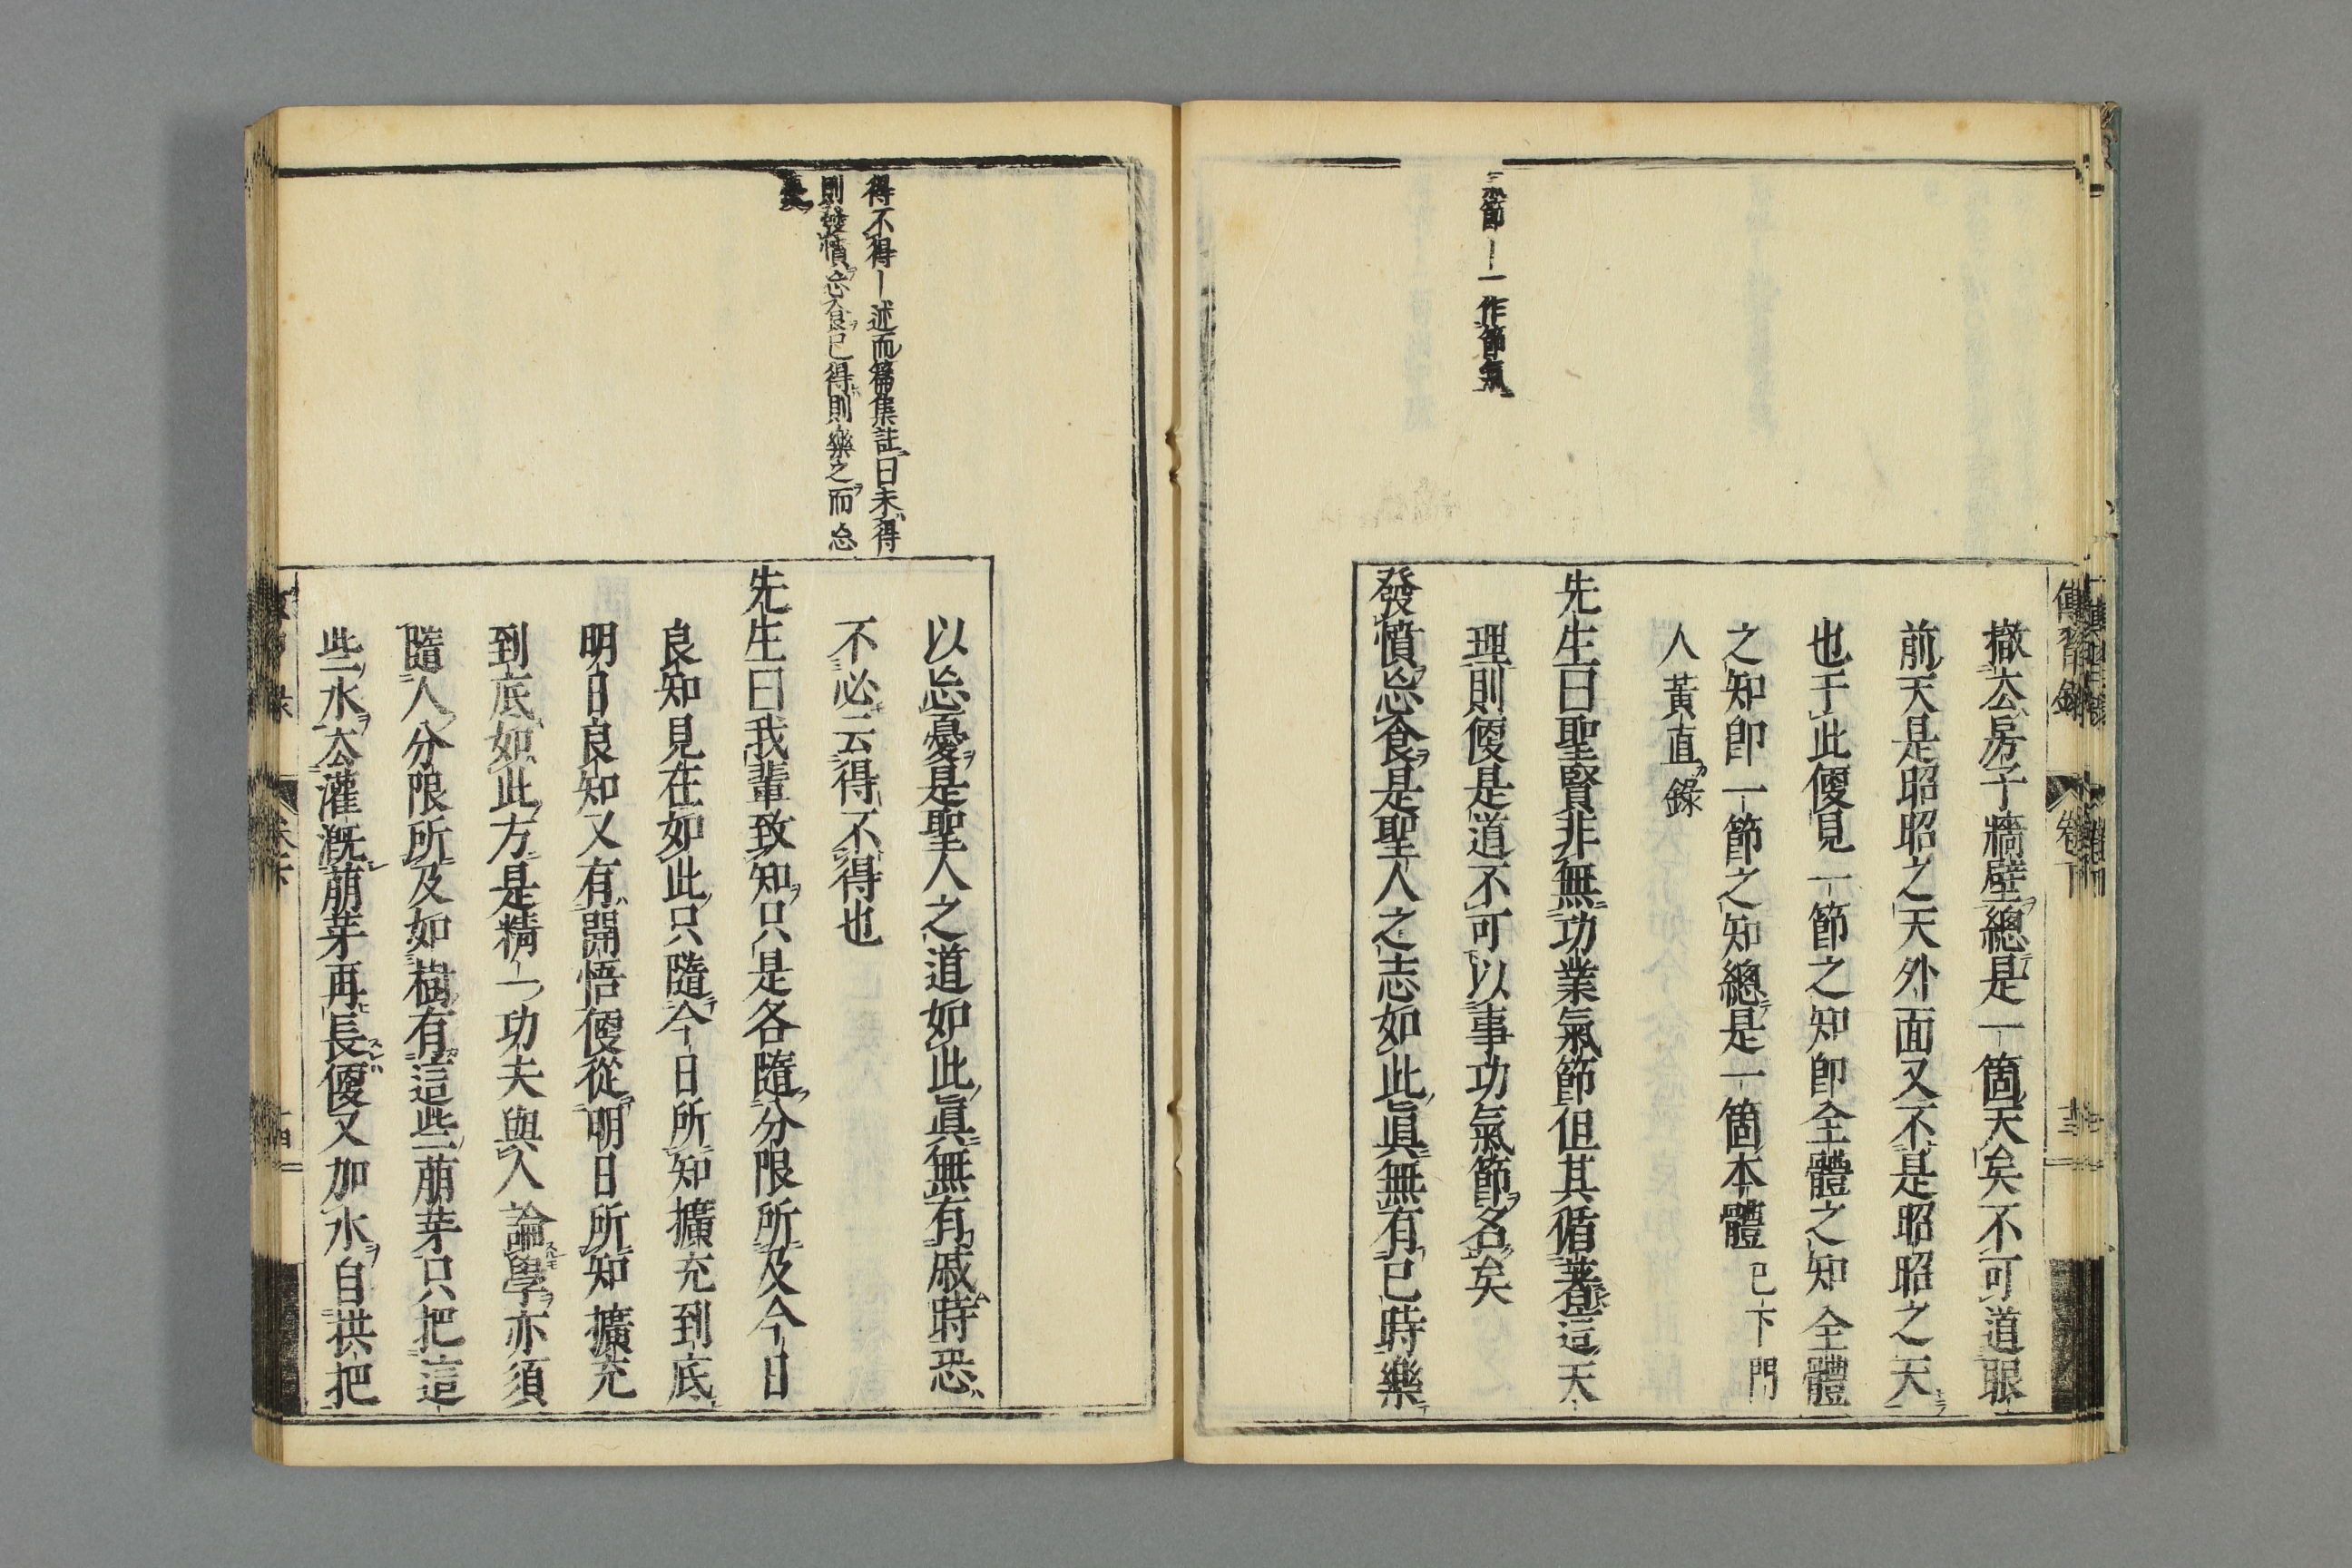 傳習錄 卷下
氣節｜一作節氣
撤去房子牆壁總是一箇天矣不可道眼
前天是昭昭之天外面又不是昭昭之天
也于此便見一節之知卽全體之知全體
之知卽一節之知總是一箇本體 已下門
人黃直錄
先生曰聖賢非無功業氣節但其循著這天
理則便是道不可以事功氣節名矣
發憤忘食是聖人之志如此眞無有已時樂
得不得｜述而篇集註曰未得
則發憤忘食已得則樂之而忘
憂
以忘憂是聖人之道如此眞無有戚時恐
不必云得不得也
先生曰我輩致知只是各隨分限所及今日
良知見在如此只隨今日所知擴充到底
明日良知又有開悟便從明日所知擴充
到底如此方是精一功夫與人論學亦須
隨人分限所及如樹有這些萌芽只把這
些水去灌漑萌芽再長便又加水自拱把